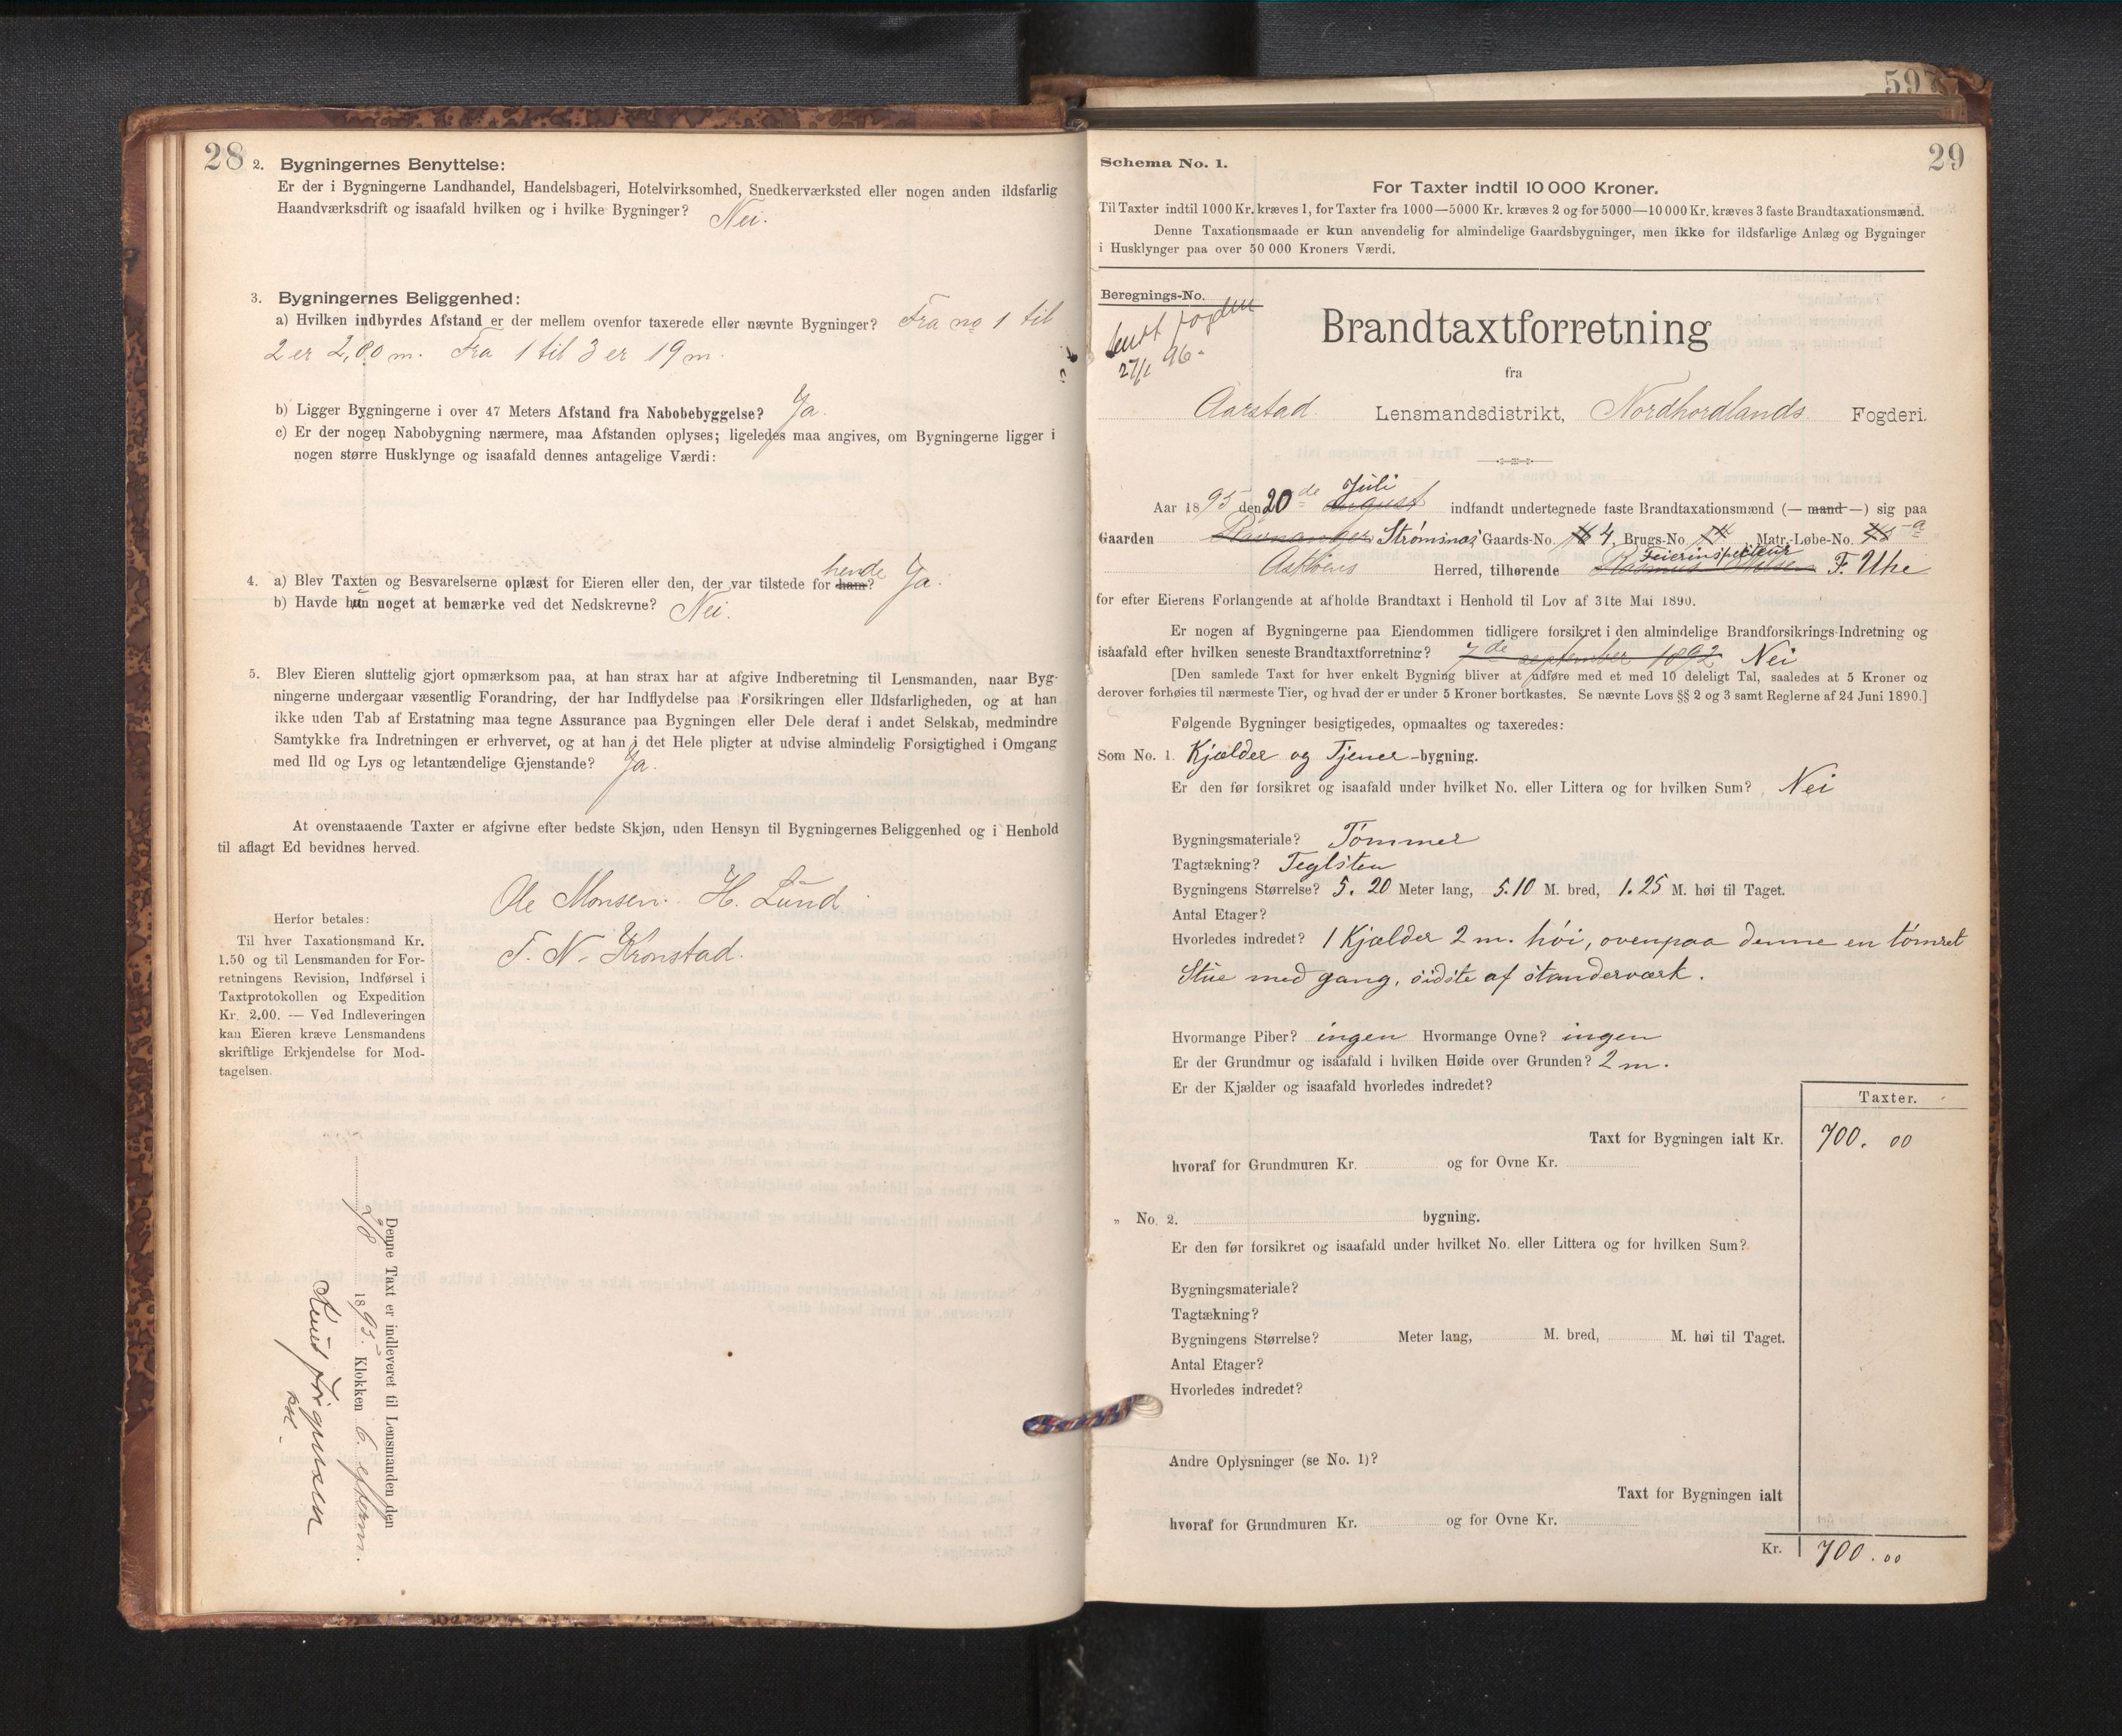 28
2. Bygningernes Benyttelse:
Er der i Bygningerne Landhandel, Handelsbageri, Hotelvirksomhed, Snedkerværksted eller nogen anden ildsfarlig
Haandværksdrift og isaafald hvilken og i hvilke Bygninger? Nei.
3. Bygningernes Beliggenhed:
a) Hvilken indbyrdes Afstand er der mellem ovenfor taxerede eller nævnte Bygninger? Fra no 1 til
2 er 2,80 m. Fra 1 til 3 er 19 m.
b) Ligger Bygningerne i over 47 Meters Afstand fra Nabobebyggelse? Ja.
c) Er der nogen Nabobygning nærmere, maa Afstanden oplyses; ligeledes maa angives, om Bygningerne ligger i
nogen større Husklynge og isaafald dennes antagelige Værdi:
4. a) Blev Taxten og Besvarelserne oplæst for Eieren eller den, der var tilstede for ham? hende Ja.
b) Havde hun noget at bemærke ved det Nedskrevne? Nei.
5. Blev Eieren sluttelig gjort opmærksom paa, at han strax har at afgive Indberetning til Lensmanden, naar Byg-
ningerne undergaar væsentlig Forandring, der har Indflydelse paa Forsikringen eller Ildsfarligheden, og at han
ikke uden Tab af Erstatning maa tegne Assurance paa Bygningen eller Dele deraf i andet Selskab, medmindre
Samtykke fra Indretningen er erhvervet, og at han i det Hele pligter at udvise almindelig Forsigtighed i Omgang
med Ild og Lys og letantændelige Gjenstande? Ja.
At ovenstaaende Taxter er afgivne efter bedste Skjøn, uden Hensyn til Bygningernes Beliggenhed og i Henhold
til aflagt Ed bevidnes herved.
Ole Monsen. H. Lund
T. N. Kronstad.
Herfor betales:
Til hver Taxationsmand Kr.
1.50 og til Lensmanden for For-
retningens Revision, Indførsel i
Taxtprotokollen og Expedition
Kr. 2.00. — Ved Indleveringen
kan Eieren kræve Lensmandens
skriftlige Erkjendelse for Mod-
tagelsen.
Denne Taxt er indleveret til Lensmanden den
1895. Klokken 6. efterm.
Knud Jørgensen
597
29
Schema No. 1.
For Taxter indtil 10 000 Kroner.
Til Taxter indtil 1000 Kr. kræves 1, for Taxter fra 1000—5000 Kr. kræves 2 og for 5000—10 000 Kr. kræves 3 faste Brandtaxationsmænd.
Denne Taxationsmaade er kun anvendelig for almindelige Gaardsbygninger, men ikke for ildsfarlige Anlæg og Bygninger
i Husklynger paa over 50 000 Kroners Værdi.
Beregnings-No.
sendt fogden
27/1 96.
Brandtaxtforretning
fra
Aarstad Lensmandsdistrikt, Nordhordlands Fogderi.
Juli
Aar 1895 den 20de August indfandt undertegnede faste Brandtaxationsmænd (— mand —) sig paa
Gaarden Ravnanger Strømsnæs Gaards-No. 4, Brugs-No. , Matr.-Løbe-No.
Feierinspekteur
Askøens Herred, tilhørende Rasmus Nilsen F. Uhe
for efter Eierens Forlangende at afholde Brandtaxt i Henhold til Lov af 31te Mai 1890.
Er nogen af Bygningerne paa Eiendommen tidligere forsikret i den almindelige Brandforsikrings-Indretning og
isaafald efter hvilken seneste Brandtaxtforretning? 7de september 1892 Nei
[Den samlede Taxt for hver enkelt Bygning bliver at udføre med et med 10 deleligt Tal, saaledes at 5 Kroner og
derover forhøies til nærmeste Tier, og hvad der er under 5 Kroner bortkastes. Se nævnte Lovs §§ 2 og 3 samt Reglerne af 24 Juni 1890.]
Følgende Bygninger besigtigedes, opmaaltes og taxeredes:
Som No. 1. Kjælder og Tjener-bygning.
Er den før forsikret og isaafald under hvilket No. eller Littera og for hvilken Sum? Nei
Bygningsmateriale? Tømmer
Tagtækning? Teglsten
Bygningens Størrelse? 5.20 Meter lang, 5.10 M. bred, 1.25 M. høi til Taget.
Antal Etager?
Hvorledes indredet? 1 Kjælder 2 m. høi, ovenpaa denne en tømret
Stue med gang, sidste af standerværk.
Hvormange Piber? ingen Hvormange Ovne? ingen
Er der Grundmur og isaafald i hvilken Høide over Grunden? 2 m.
Er der Kjælder og isaafald hvorledes indredet?
Taxter.
Taxt for Bygningen ialt Kr. 700. 00
hvoraf for Grundmuren Kr. og for Ovne Kr.
„ No. 2. bygning.
Er den før forsikret og isaafald under hvilket No. eller Littera og for hvilken Sum?
Bygningsmateriale?
Tagtækning?
Bygningens Størrelse? Meter lang, M. bred, M. høi til Taget.
Antal Etager?
Hvorledes indredet?
Andre Oplysninger (se No. 1)?
Taxt for Bygningen ialt
hvoraf for Grundmuren Kr. og for Ovne Kr.
Kr. 700.00